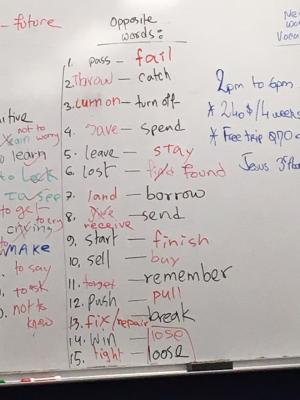 - future
Opposite
words:
1. pass - fail
2. Throw - catch
3. turn on - turn off
4. save - spend
5. leave - stay
6. lost - found
7. land - borrow
8. give - send
receive
9. start - finish
10. sell - buy
11. forget - remember
12. push - pull
13. fix/repair - break
14. win - lose
15. tight - loose
not to
worry
to learn
to look
to see
to get
to cry
crying
MAKE
to say
to ask
not to
know
New
Voca
2pm to 6pm
* 240$/4 weeks
* Free trip
Jesus